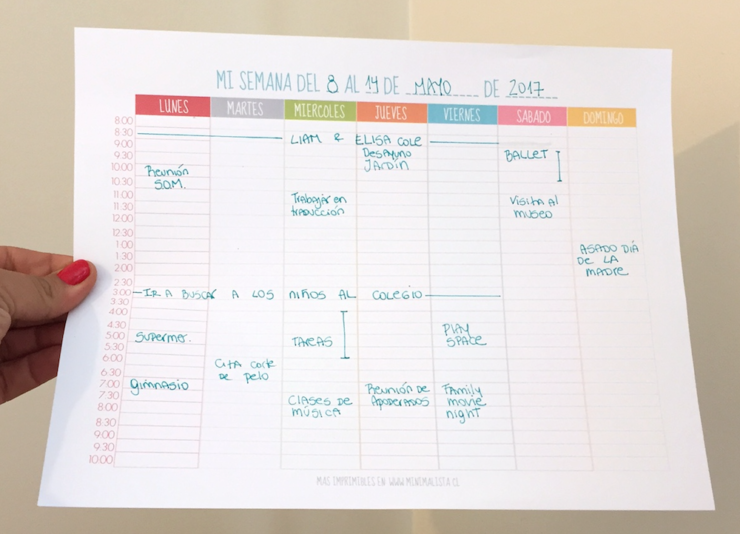 MI SEMANA DEL 8 AL 14 DE MAYO DE 2017
LUNES MARTES MIERCOLES JUEVES VIERNES SABADO DOMINGO
8:00
8:30
LIAM & ELISA COLE
9:00
Desayuno
BALLET
9:30
JARDÍN
10:00
Reunión
10:30
S.O.M.
11:00
Trabajar en
Visita al
11:30
traducción
museo
12:00
12:30
1:00
ASADO DÍA
1:30
DE LA
2:00
MADRE
2:30
3:00
IR A BUSCAR A LOS NIÑOS AL COLEGIO
3:30
4:00
4:30
PLAY
5:00
Supermer.
TAREAS
SPACE
5:30
6:00
Cita corte
6:30
de pelo
7:00
gimnasio
Reunión de
Family
7:30
Clases de
Apoderados
movie
8:00
música
night
8:30
9:00
9:30
10:00
MAS IMPRIMIBLES EN WWW.MINIMALISTA.CL